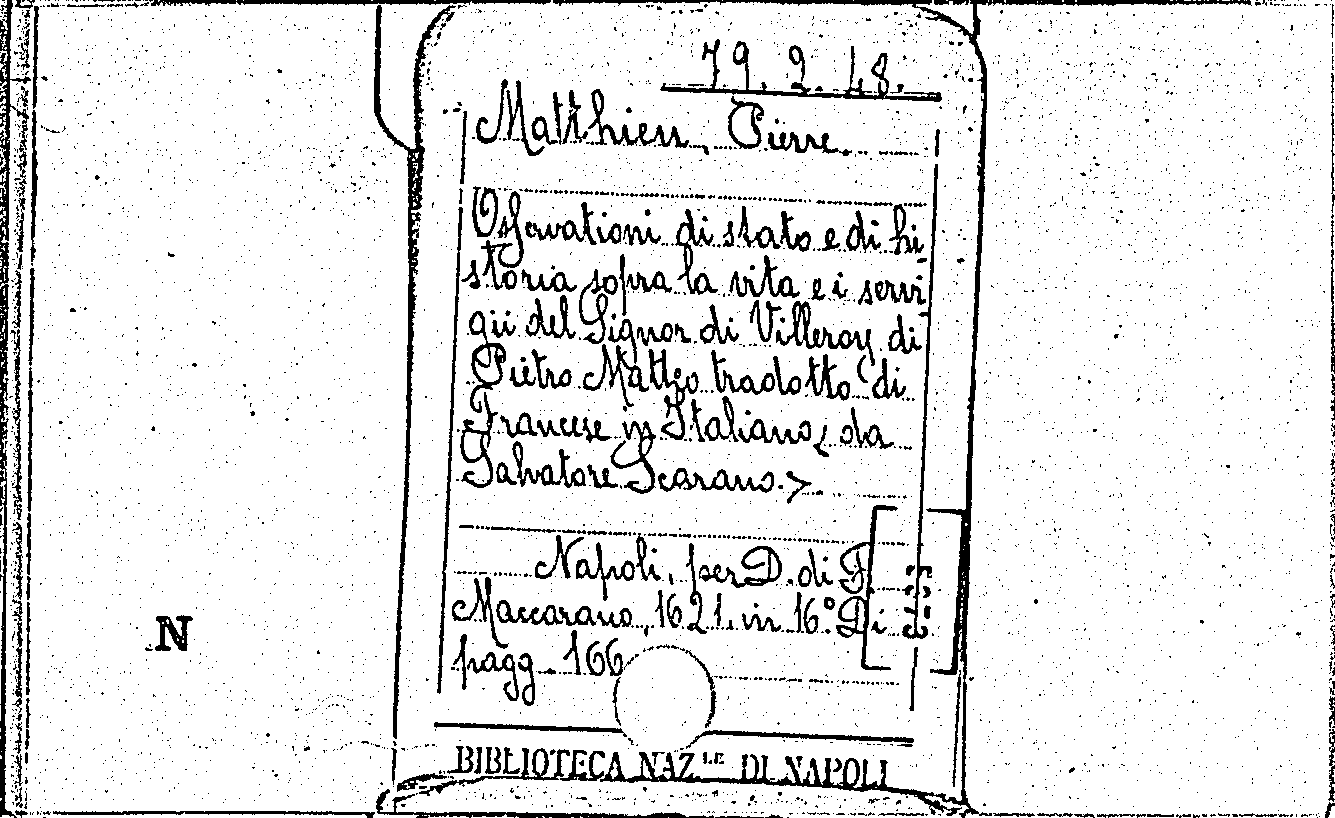 79. 2. 48.
Matthieu, Pierre.
Osservationi di stato e di hi-
storia sopra la vita e i servi-
gii del Signor di Villeroy di
Pietro Matteo tradotto di
Francese in Italiano, da
Salvatore Scarano.>
Napoli, per D. di F.
Maccarano, 1621. in 16° Di
pagg. 166
N
BIBLIOTECA NAZ.LE DI NAPOLI